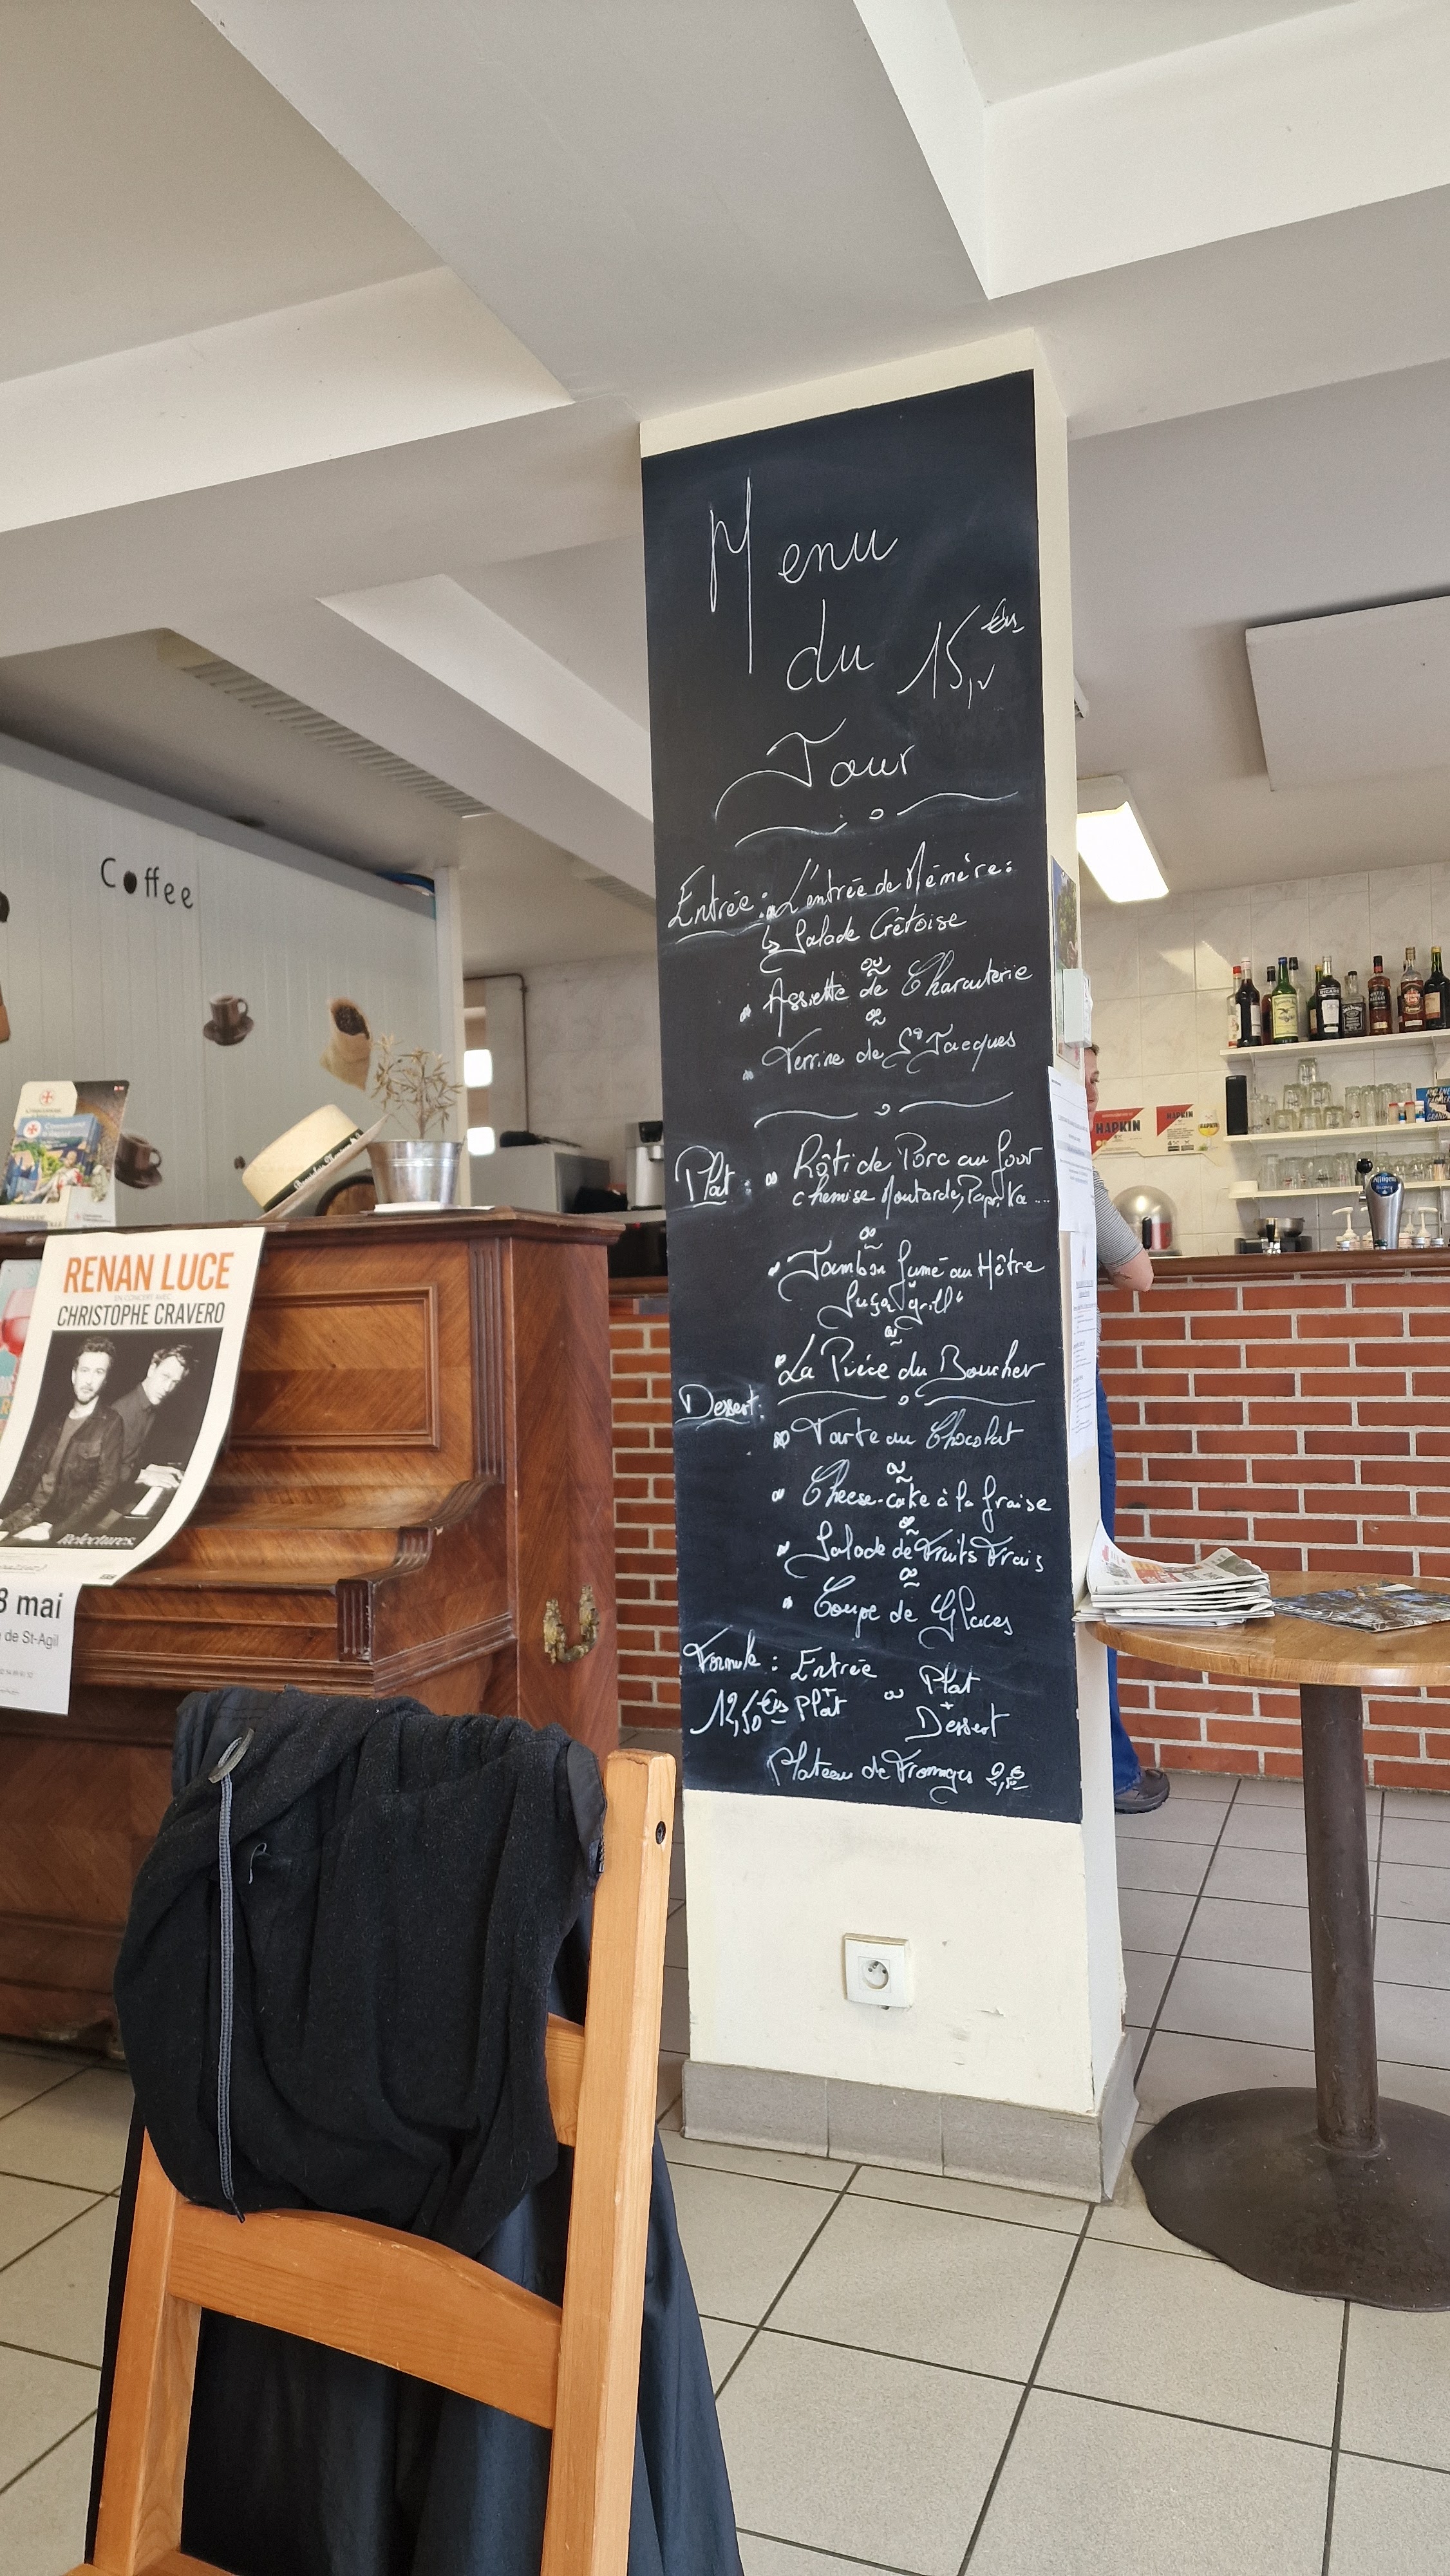 Menu
du 15,
Jour
Entrée : L'entrée de Mémère :
Salade Crêtoise
ou
Assiette de Charcuterie
ou
Terrine de St Jacques
Plat : Rôti de Porc au four
chemise Moutarde, Paprika ...
ou
Jambon fumé au Hêtre
grill"
ou
La Pièce du Boucher
Dessert :
Tarte au Chocolat
ou
Cheese-cake à la fraise
ou
Salade de Fruits Frais
ou
Coupe de Glaces
Formule : Entrée ou Plat
+ +
12,50 Plat Dessert
Plateau de Fromages
Coffee
RENAN LUCE
EN CONCERT AVEC
CHRISTOPHE CRAVERO
Relectures
8 mai
de St-Agil
HAPKIN
HAPKIN
HAPKIN